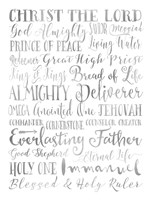 CHRIST THE LORD
God Almighty SAVIOR MESSIAH
PRINCE OF PEACE Living Water
REDEEMER Great High Priest
King of Kings Bread of Life
ALMIGHTY Deliverer
OMEGA Anointed One JEHOVAH
COMMANDER CORNERSTONE COUNSELOR CREATOR
Everlasting Father
Good Shepherd Eternal Life
HOLY ONE Immanuel
Blessed & Holy Ruler